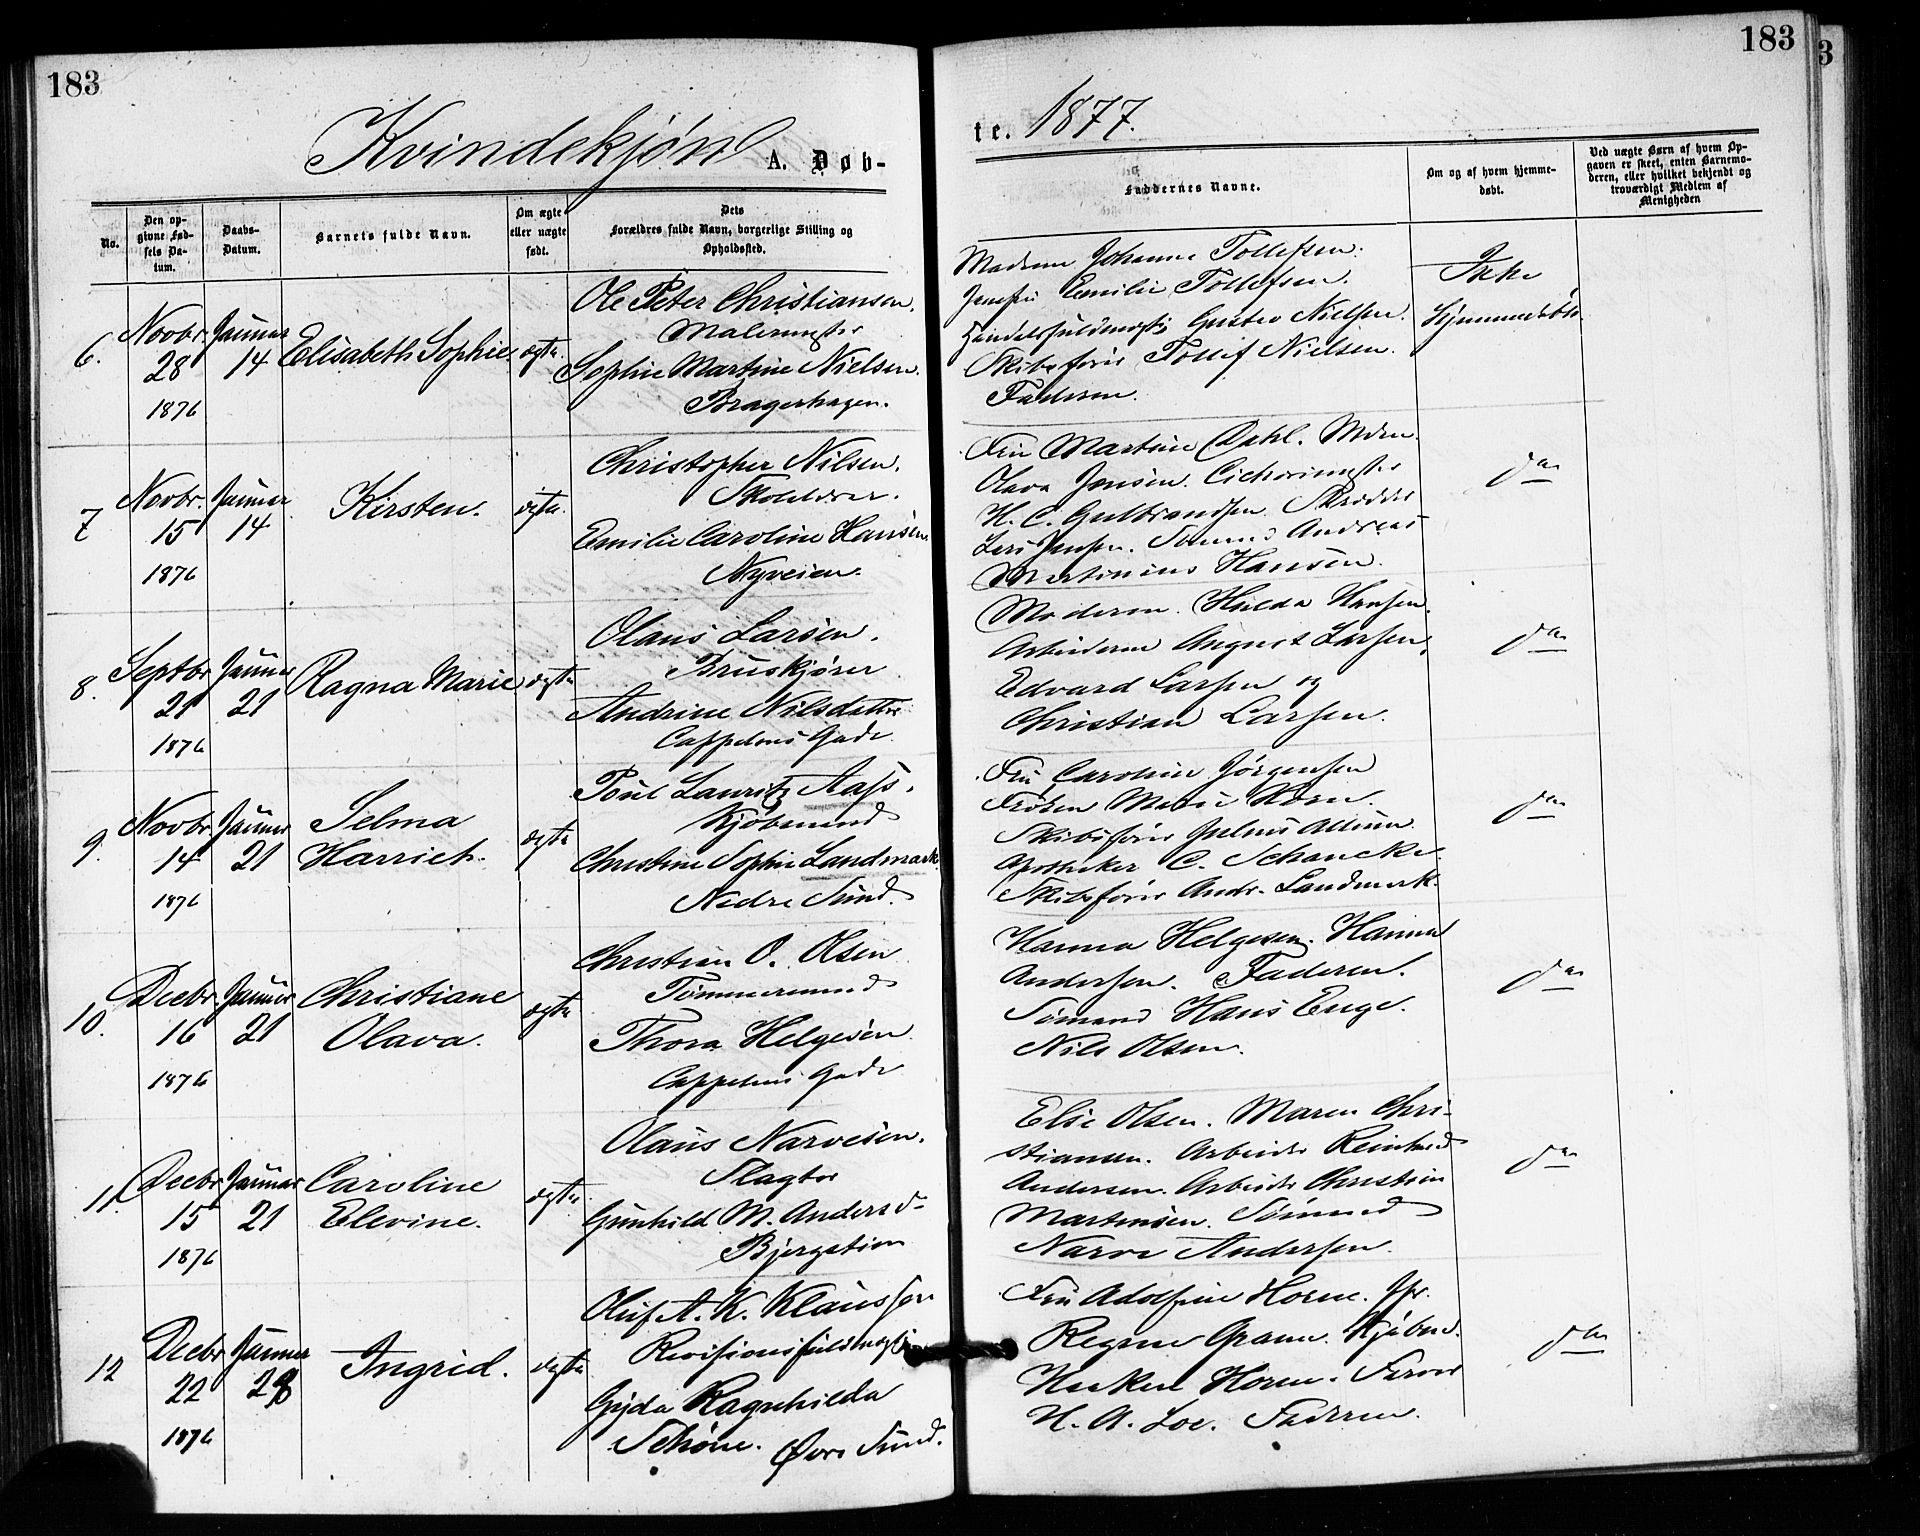 183
Kvindekjøn A. Døb-
No.
Den op-
givne Fød-
sels Da-
tum.
Daabs-
Datum.
Barnets fulde Navn.
Om ægte
eller uægte
født.
Dets
Forældres fulde Navn, borgerlige Stilling og
Opholdssted.
6.
Novbr.
28
1876
Januar
14
Elisabeth Sophie.
ægte.
Ole Peter Christiansen.
Malermester
Sophie Martine Nielsen.
Bragerhagen.
7
Novbr.
15
1876
Januar
14
Kirsten.
ægte.
Christopher Nilsen.
Skolelærer.
Emilie Caroline Hansen.
Nyveien.
8.
Septbr
21
1876
Januar
21
Ragna Marie
ægte
Olaus Larsen.
Bruskjører
Andrine Nilsdatter
Cappelens Gade.
9.
Novbr.
14
1876
Januar
21
Selma
Harriet.
ægte
Poul Lauritz Aass.
Kjøbmand
Christine Sophie Landmark
Nedre Sund.
10.
Decbr.
16
1876
Januar
21
Christiane
Olava.
ægte
Christian O. Olsen
Tømmermand
Thora Helgesen.
Cappelens Gade
11.
Decbr
15
1876
Januar
21
Caroline
Elevine.
ægte.
Olaus Narvesen.
Slagter
Gunhild M. Andersd-
Bjergstien
12
Decbr
22
1876
Januar
28
Ingrid.
ægte
Oluf A. K. Klaussen
Revisionsfuldmægtig
Gyda Ragnhilda
Schøne. Øvre Sund.
183
te. 1877.
Faddernes Navne.
Om og af hvem hjemme-
døbt.
Ved uægte Børn af hvem Op-
gaven er skeet, enten Barnemo-
deren, eller hvilket bekjendt og
troværdigt Medlem af
Menigheden
Madame Johanne Tollefsen.
Jomfru Emilie Tollefsen.
Handelsfuldmægtig Gustav Nielsen.
Skibsfører Tollif Nielsen.
Faderen.
Ikke
Hjemmedøbt.
Fru Martine Dahl. Moren.
Olava Jensen. Cichorimester
H. C. Gulbrandsen. Skrædder
Lars Jensen. Sømand Andreas
Martinius Hansen.
do
Moderen. Hulda Hansen.
Arbeiderne August Larsen,
Edvard Larsen og
Christian Larsen.
do
Fru Caroline Jørgensen
Frøken Marie Horn.
Skibsfører Julius Allum.
Apotheker C. Schancke.
Skibsfører Andr. Landmark.
do
Hanna Helgesen. Hanna
Andersen. Faderen.
Sømand Hans Enge.
Nils Olsen.
do
Else Olsen. Maren Chri-
stiansen. Arbeider Reinhard
Andersen. Arbeider Christian
Martinsen. Sømand
Narve Andersen.
do
Fru Adolfine Horne. Jfr.
Regine Gram. Kjøbmd.
Haaken Horne. Farver
H. A. Loe. Faderen.
do